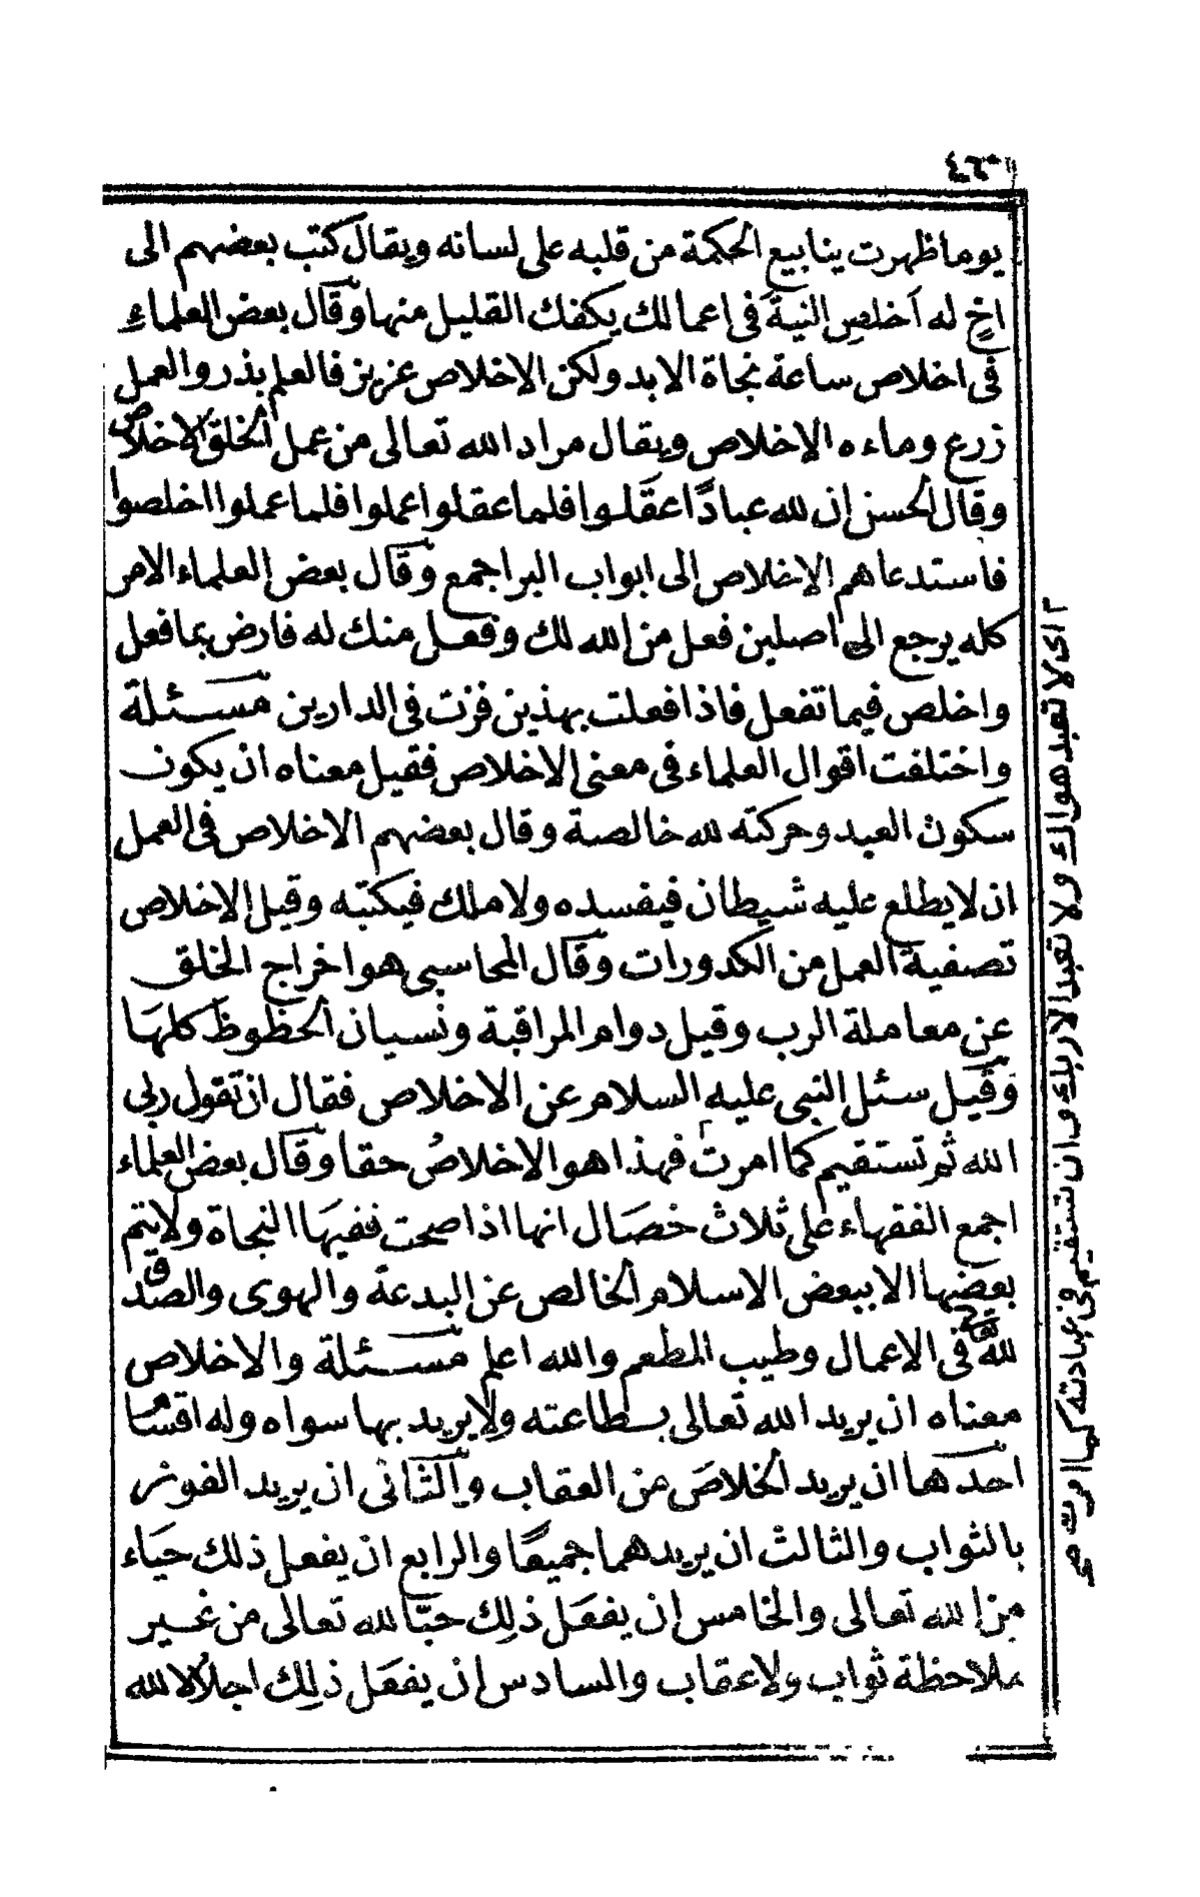 ٤٦٠
يوما ظهرت ينابيع الحكمة من قلبه على لسانه ويقال كتب بعضهم الى
اخٍ له اَخلصِ النيةَ فى اعمالك يكفك القليل منها وقال بعض العلماءِ
فى اخلاص ساعة نجاة الابد ولكن الاخلاص عزيز فالعلم بذر والعمل
زرع وماءه الاخلاص ويقال مراد الله تعالى من عمل الخلق الاخلاص
وقال الحسن ان لله عبادًا عقَلوا فلما عقلوا عملوا فلما عملوا اخلصوا
فاستدعاهم الاخلاص الى ابواب البر اجمع وقال بعض العلماء الامر
كله يرجع الى اصلين فعل من الله لك وفعل منك له فارض بما فعل
واخلص فيما تفعل فاذا فعلت بهذين فزت فى الدارين مسئلة
واختلفت اقوال العلماء فى معنى الاخلاص فقيل معناه ان يكون
سكون العبد وحركته لله خالصة وقال بعضهم الاخلاص فى العمل
ان لا يطلع عليه شيطان فيفسده ولا ملك فيكتبه وقيل الاخلاص
تصفية العمل من الكدورات وقال المحاسبى هو اخراج الخلق
عن معاملة الرب وقيل دوام المراقبة ونسيان الحظوظ كلهَا
وقيل سئل النبى عليه السلام عن الاخلاص فقال ان تقول ربى
الله ثم تستقيم كما امرتَ ٢ فهذا هو الاخلاصُ حقا وقال بعض العلماء
اجمع الفقهاء على ثلاث خصَال انها اذا صحت ففيهَا النجاة ولا يتم
بعضها الا ببعض الاسلام الخالص عن البدعة والهوى والصدق
لله تعالى فى الاعمال وطيب المطعم والله اعلم مسئلة والاخلاص
معناه ان يريد الله تعالى بطاعته ولا يريد بها سواه وله اقسام
احدها ان يريد الخلاصَ من العقاب والثانى ان يريد الفوز
بالثواب والثالث ان يريدهما جميعًا والرابع ان يفعل ذلك حيَاء
من الله تعالى والخامس ان يفعَل ذلِك حبّا لله تعالى من غير
ملاحظة ثواب ولا عقاب والسادس ان يفعَل ذلِك اجلالا لله
٢ اى لا تعبد هواك ولا تعبد الا ربك وان تستقيم فى عبادته كما امرت صح